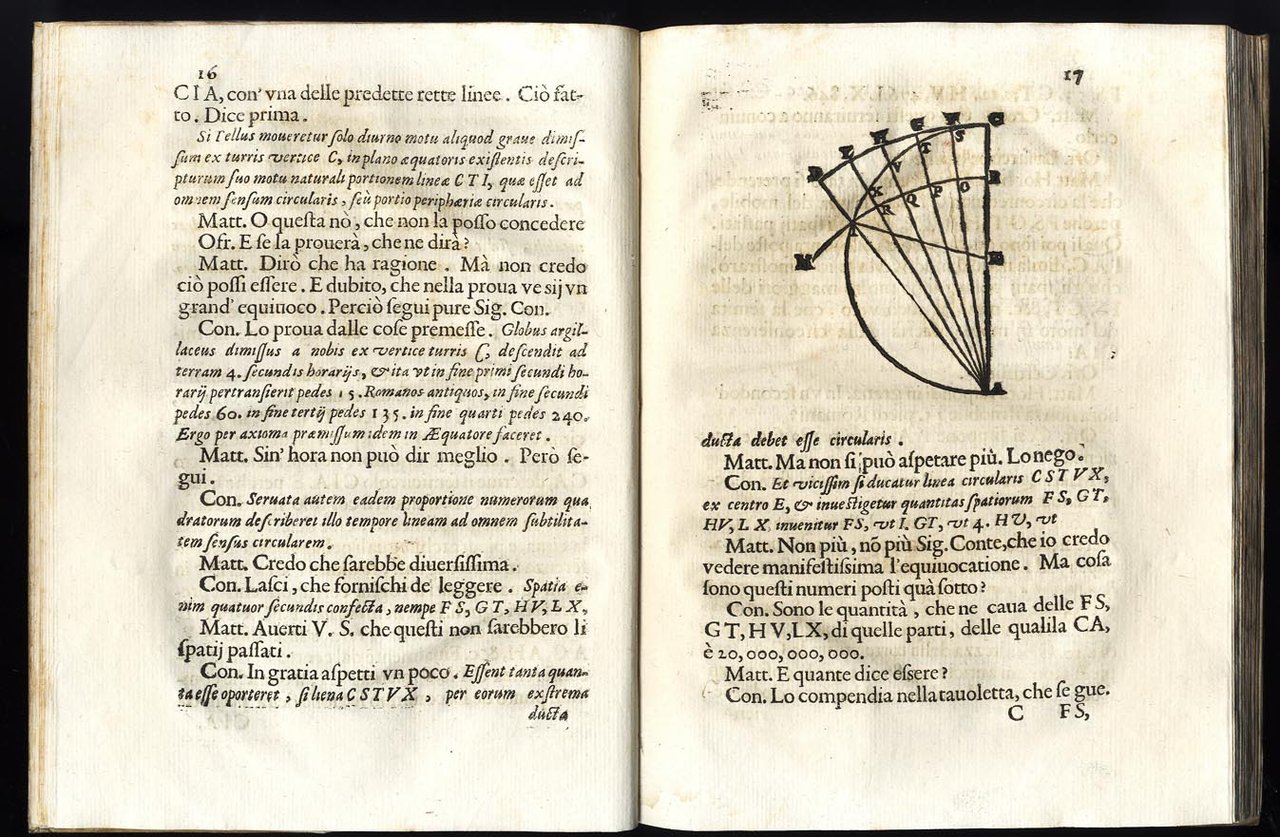 16
C I A, con' vna delle predette rette linee. Ciò fat-
to. Dice prima.
Si Tellus moueretur ſolo diurno motu aliquod graue dimiſ-
ſum ex turris vertice C, in plano æquatoris exiſtentis deſcri-
pturum ſuo motu naturali portionem lineæ C T I, quæ eſſet ad
omnem ſenſum circularis, ſeù portio peripheriæ circularis.
Matt. O queſta nò, che non la poſſo concedere
Ofr. E ſe la prouerà, che ne dirà?
Matt. Dirò che ha ragione. Mà non credo
ciò poſſi eſſere. E dubito, che nella proua ve ſij vn
grand' equiuoco. Perciò ſegui pure Sig. Con.
Con. Lo proua dalle coſe premeſſe. Globus argil-
laceus dimiſſus a nobis ex vertice turris C, deſcendit ad
terram 4. ſecundis horarijs, & ita vt in fine primi ſecundi ho-
rarij pertranſierit pedes 15. Romanos antiquos, in fine ſecundi
pedes 60. in fine tertij pedes 135. in fine quarti pedes 240.
Ergo per axioma præmiſſum idem in Æquatore faceret.
Matt. Sin' hora non può dir meglio. Però ſe-
gui.
Con. Seruata autem eadem proportione numerorum qua
dratorum deſcriberet illo tempore lineam ad omnem ſubtilita-
tem ſenſus circularem.
Matt. Credo che ſarebbe diuerſiſſima.
Con. Laſci, che forniſchi de leggere. Spatia e-
nim quatuor ſecundis confecta, nempe F S, G T, H V, L X,
Matt. Auerti V. S. che queſti non ſarebbero li
ſpatij paſſati.
Con. In gratia aſpetti vn poco. Eſſent tanta quan-
ta eſſe oporteret, ſi liena C S T V X, per eorum exſtrema
ducta
17
C
F
S
G
T
H
V
L
D
X
B
O
P
Q
R
I
M
E
A
ducta debet eſſe circularis.
Matt. Ma non ſi può aſpetare più. Lo nego.
Con. Et viciſſim ſi ducatur linea circularis C S T V X,
ex centro E, & inueſtigetur quantitas ſpatiorum F S, G T,
H V, L X, inuenitur F S, vt I. G T, vt 4. H V, vt
Matt. Non più, nõ più Sig. Conte, che io credo
vedere manifeſtiſſima l'equiuocatione. Ma coſa
ſono queſti numeri poſti quà ſotto?
Con. Sono le quantità, che ne caua delle F S,
G T, H V, L X, di quelle parti, delle qualila CA,
è 20,000,000,000.
Matt. E quante dice eſſere?
Con. Lo compendia nella tauoletta, che ſe gue.
C F S,